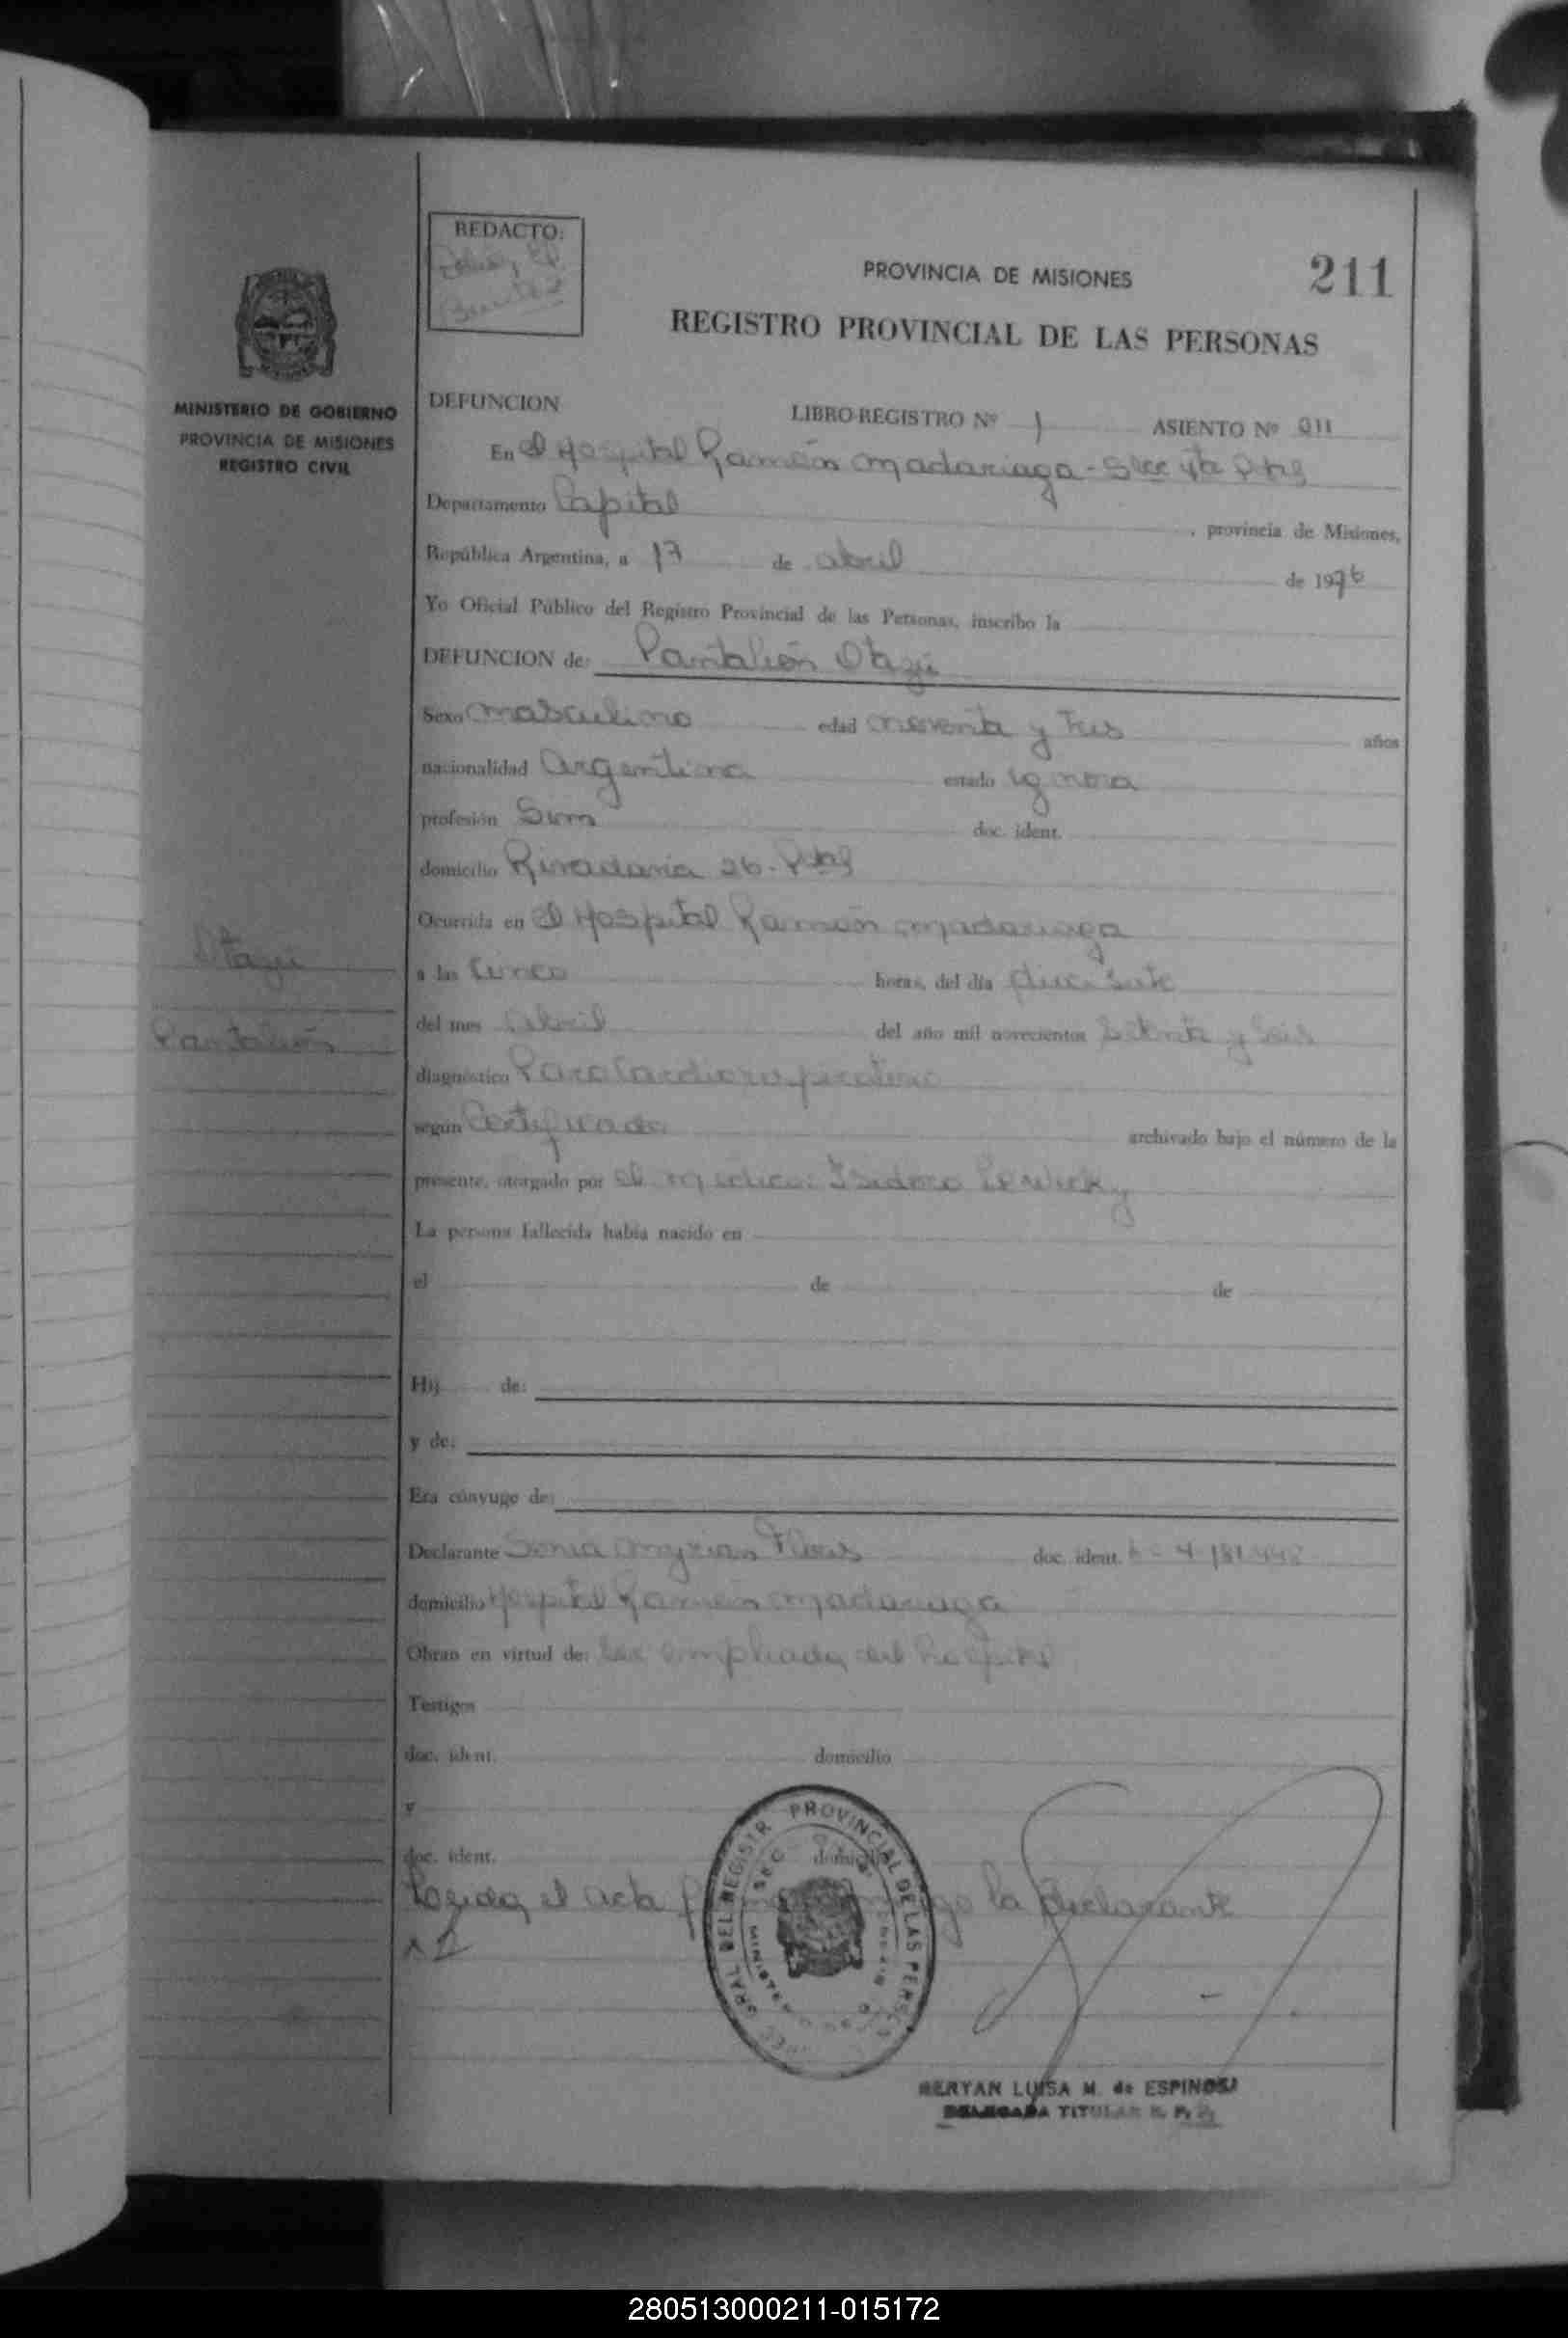 REDACTO:
PROVINCIA DE MISIONES
211
REGISTRO PROVINCIAL DE LAS PERSONAS
MINISTERIO DE GOBIERNO
PROVINCIA DE MISIONES
REGISTRO CIVIL
DEFUNCION LIBRO-REGISTRO Nº 1 ASIENTO Nº 211
En el Hospital Ramón Madariaga - Secc 4ta Pdas
Departamento Capital , provincia de Misiones,
República Argentina, a 17 de abril de 1976
Yo Oficial Público del Registro Provincial de las Personas, inscribo la
DEFUNCION de: Pantaleón Otazú
Sexo masculino edad noventa y tres años
nacionalidad Argentina estado ignora
profesión doc. ident.
domicilio Rivadavia 26 - Pdas
Ocurrida en el Hospital Ramón Madariaga
Otazú
a las cinco horas, del día diecisiete
Pantaleón
del mes abril del año mil novecientos setenta y seis
diagnóstico Paro Cardiorespiratorio
según Certificado archivado bajo el número de la
presente, otorgado por el médico: Isidoro Lewicky
La persona fallecida había nacido en
el de de
Hij de:
y de:
Era cónyuge de:
Declarante Sonia Myrian Flores doc. ident.
domicilio Hospital Ramón Madariaga
Obran en virtud de: ser empleada del hospital
Testigos
doc. ident. domicilio
y
doc. ident. domicilio
Leída el acta la declarante
PROVINCIAL DE LAS PERSONAS
GRAL DEL REGISTR
MINISTER
BERYAN LUISA M. de ESPINOSA
DELEGADA TITULAR R. P. P.
280513000211-015172